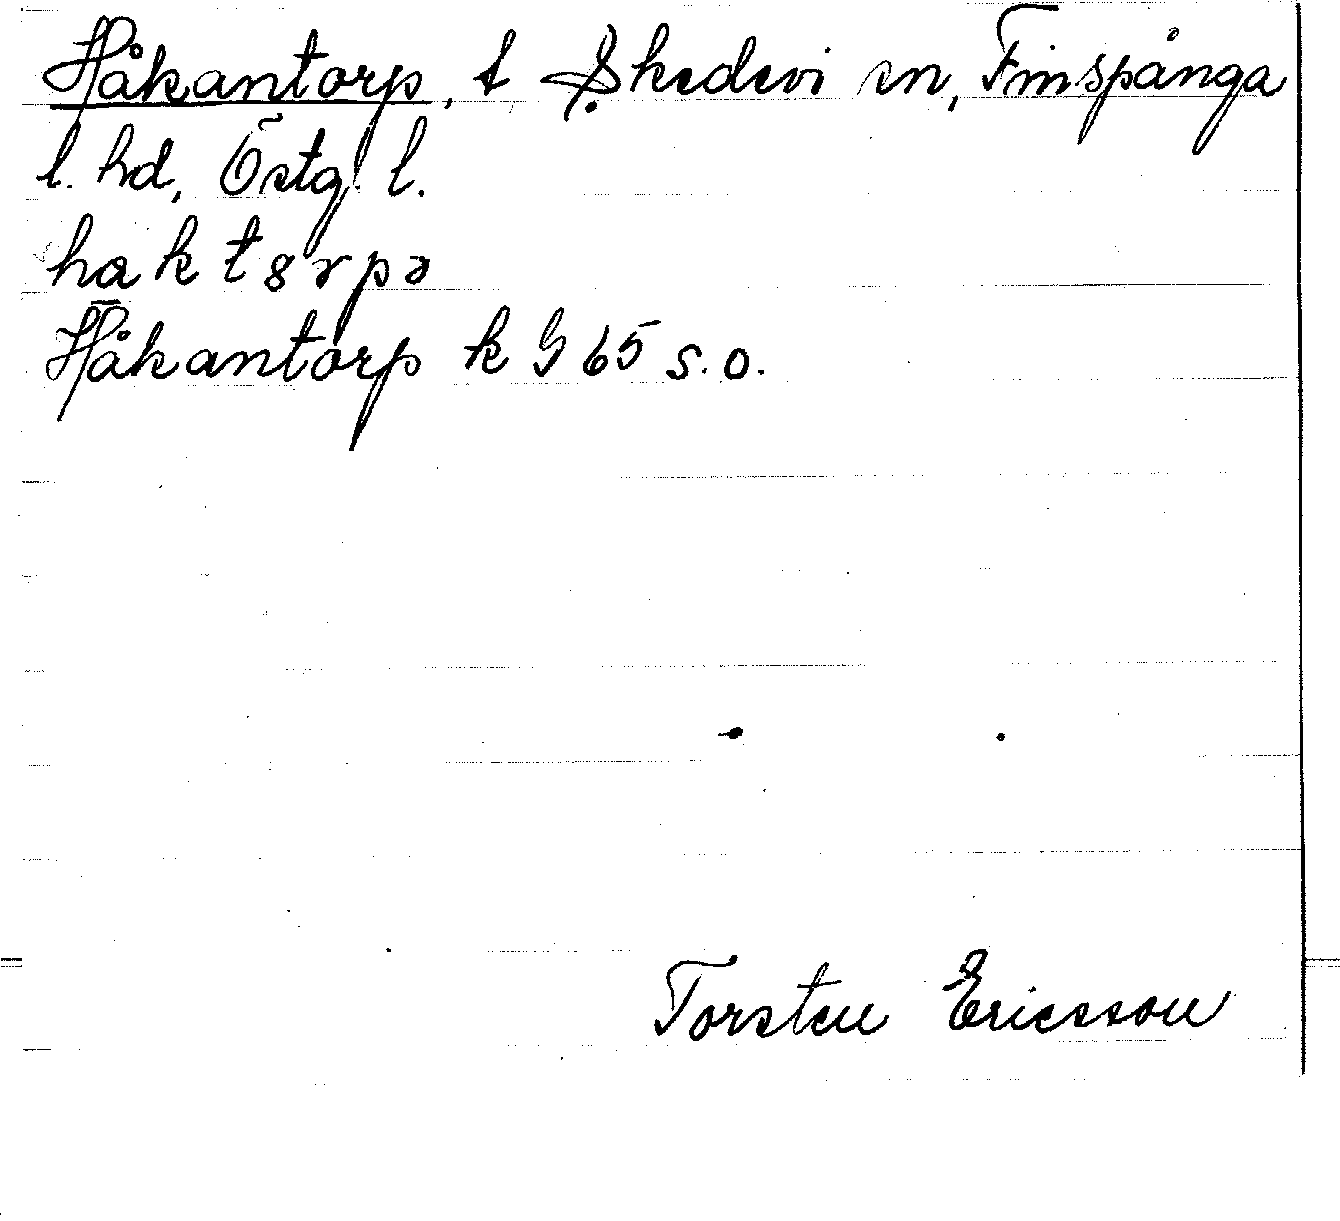 Håkantorp, t Skedevi sn, Finspånga
l. hd, Östg. l.
hakt8rpə
Håkantorp k G 65 s.o.
Torsten Ericsson